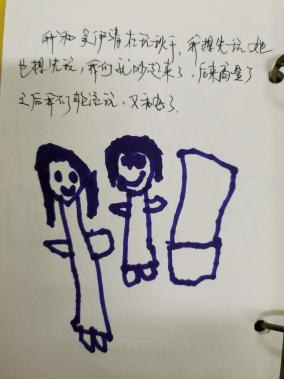 我和吴伊清在玩秋千，我想先玩，她
也想先玩，我们就吵起来了，后来商量了
之后我们轮流玩，又和好了.